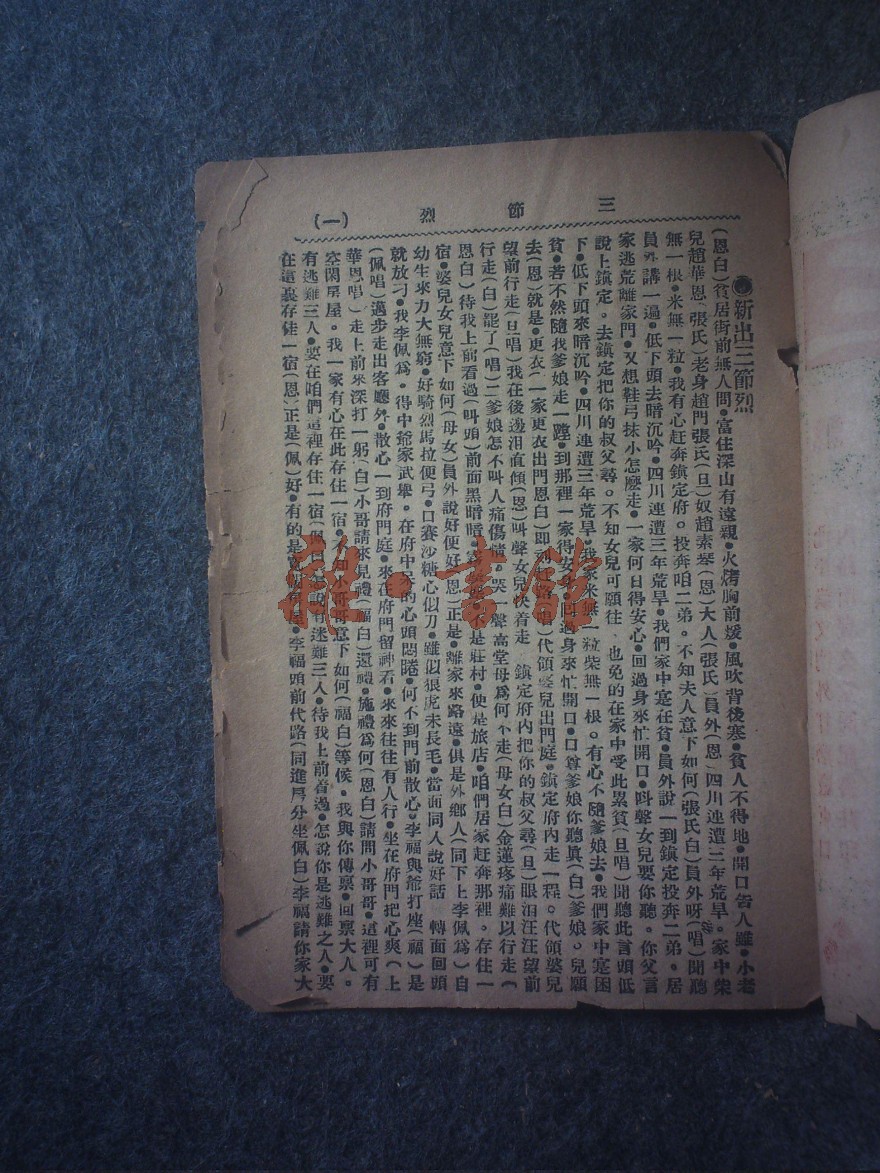 三節烈 (一)
●新出三節烈
(恩白)貧居街前無人問●富住深山有遠親●火烤胸前煖●風吹背後塞●貧人不得地●開口告人雖●小老
兒趙華恩(張氏)老身趙門張氏(旦)奴趙素琴(恩)大人(張氏)員外(恩)四川連遭三年荒旱。家中柴
無一根●米無一粒●我有心赶奔鎮定府。投奔咱二弟。不知夫人意下如何(張氏白)員外呀(唱)聞聽
員外講一遍●低下頭去暗沉吟●四川連遭三年荒旱●我們家中寔在貧●員外說一到鎮定投奔二弟。居
家逃荒離家門●又想鞋弓抹小怎麼走●一家何日得安心●回過身來忙開口●呌聲女兒要你聽。你父言
說上鎮定。去鎮定把你的叔父尋。不知女兒可願往 也免的在家中受此累貧(旦唱)聞聽此言頭低
下●低下頭來暗沉吟●四川連遭三年荒旱●我家米無一粒柴無一根。有心不隨爹娘去●我們家中寔困
貧●若不然隨我爹娘走一蹚●到那裡一家得安身●回過身來忙開口●口尊爹娘你聽真(白)爹娘。兒願
去(恩)就是●更衣(一家更衣出門恩白)即 唱)代領婆兒出門庭●鎮定府內走一程。代領婆兒
望前行走(旦唱)我在後邊泪直傾(恩)叫聲女兒快着走 鎮定府內把你的叔父尋(旦)眼泪汪汪望前
行走(白)罷了(唱)二爹娘怎不叫人痛傷情●哭一聲高堂母爲何不走(母女白)金蓮疼痛難以行走(
恩白)待我上前看過(叫頭)前面黑暗暗● 不是莊村●便是旅店●咱們居家赶奔那裡。存住一
宿●婆兒女兒意下如何(母女)員外說好便好(恩)正是●離家來路遠●俱是外鄉人(同下上李佩爲)自
幼生來力大無窮●好騎烈馬拉便弓●口賽沙糖心似刀●雖似狠虎未長毛●當面同人說好話 轉面回頭
就放刁●我李佩爲。得中爺家武舉。在府中 的心頭悶倦●何不到門前散心●李福與爺打座(福)是
(佩唱)邁步走出客廳外●散心一到府門庭●來在府門留神看●來來往往有人行●坐在府門把心爽(上
華恩唱)走上前來深打一躬(白)小哥請來見禮(福白)還禮●施禮爲何(恩白)請問小哥哥●這裡可有
空閑房屋。我一家有心在此存住一宿●不知小哥哥意下如何(福白)等候。我與你傳禀●回禀大人。
有逃難三人●要在咱們這裡存住一宿 說有迷難三人●待我上前看過●怎說你是逃難之人●要
在這裏存住一宿(恩)正是(佩)好●有的是 ●李福頭前代路(同進戶分坐佩白)李福請你家大